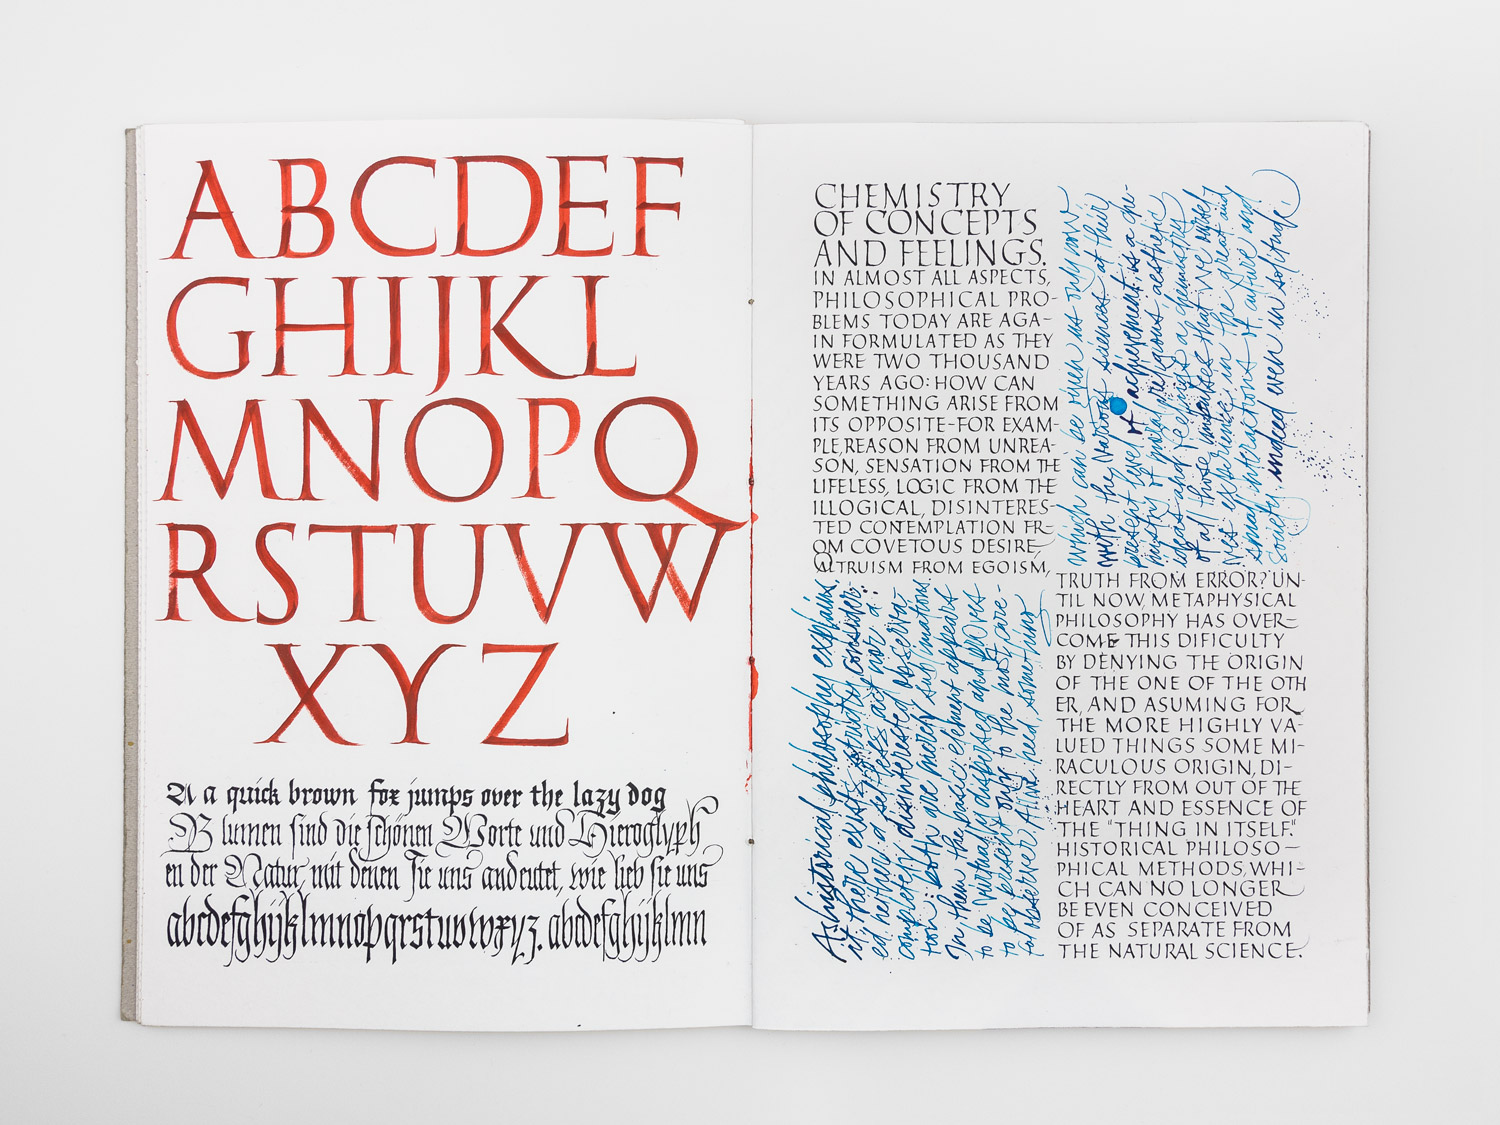 ABCDEF
GHIJKL
MNOPQ
RSTUVW
XYZ
A a quick brown fox jumps over the lazy dog
Blumen sind die schönen Worte und Hieroglyph
en der Natur, mit denen Sie uns andeutet, wie lieb sie uns
abcdefghijklmnopqrstuvwxyz. abcdefghijklmn
CHEMISTRY
OF CONCEPTS
AND FEELINGS.
IN ALMOST ALL ASPECTS,
PHILOSOPHICAL PRO-
BLEMS TODAY ARE AGA-
IN FORMULATED AS THEY
WERE TWO THOUSAND
YEARS AGO: HOW CAN
SOMETHING ARISE FROM
ITS OPPOSITE-FOR EXAM-
PLE, REASON FROM UNREA-
SON, SENSATION FROM THE
LIFELESS, LOGIC FROM THE
ILLOGICAL, DISINTERES-
TED CONTEMPLATION FR-
OM COVETOUS DESIRE,
ALTRUISM FROM EGOISM,
TRUTH FROM ERROR? UN-
TIL NOW, METAPHYSICAL
PHILOSOPHY HAS OVER-
COME THIS DIFICULTY
BY DENYING THE ORIGIN
OF THE ONE OF THE OTH
ER, AND ASUMING FOR
THE MORE HIGHLY VA-
LUED THINGS SOME MI-
RACULOUS ORIGIN, DI-
RECTLY FROM OUT OF THE
HEART AND ESSENCE OF
THE "THING IN ITSELF."
HISTORICAL PHILOSO-
PHICAL METHODS, WHI-
CH CAN NO LONGER
BE EVEN CONCEIVED
OF AS SEPARATE FROM
THE NATURAL SCIENCE.
As historical philosophy explains
it, there exists, strictly consider-
ed, neither a selfless act nor a
completely disinterested observa-
tion: both are merely sublimations.
In them the basic element appears
to be virtually dispersed and proves
to be present only to the most care-
ful observer. All we need, something
which can be given us only now,
with the various sciences at their
present level of achievement, is a che-
mistry of moral, religious, aesthetic
ideas and feelings, a chemistry
of all those impulses that we oursel
ves experience in the great and
small interactions of culture and
society, indeed even in solitude.